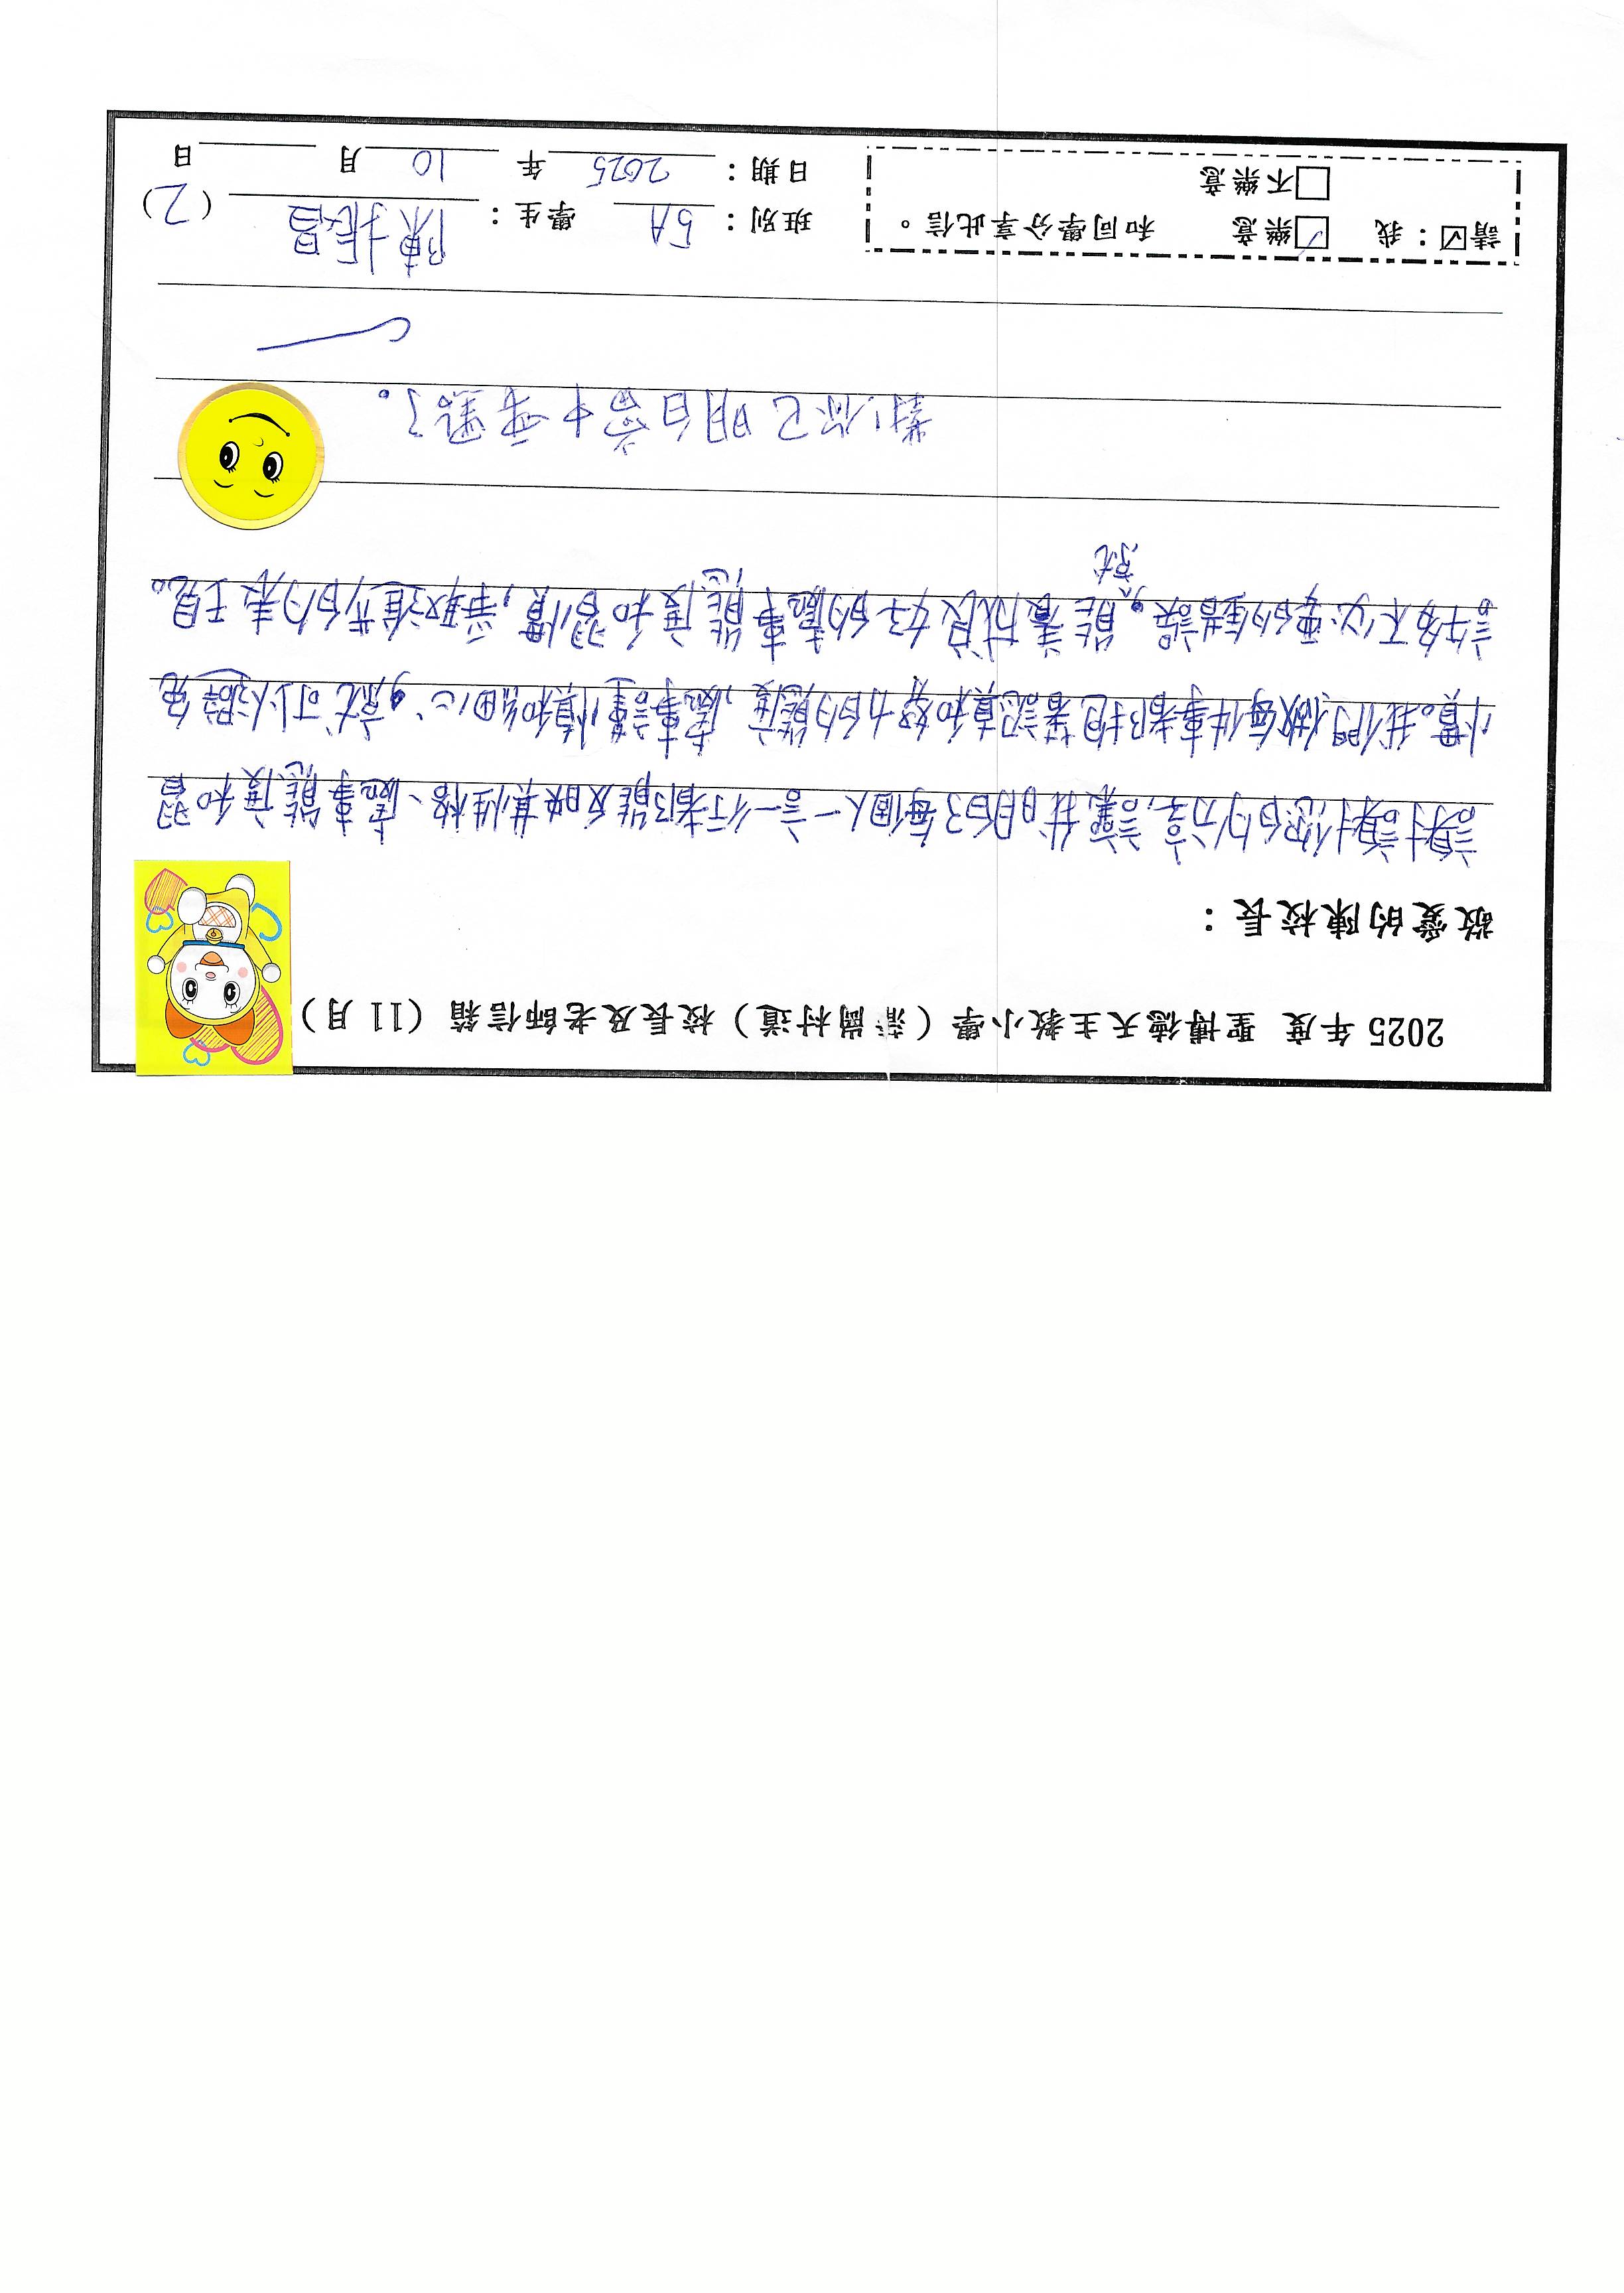 2025 年度 聖博德天主教小學（蒲崗村道）校長及老師信箱（11 月）
敬愛的陳校長：
謝謝您的分享，讓我明白了每個人一言一行都能反映其性格、處事態度和習
慣。我們做每件事都抱著認真和努力的態度，處事謹慎和細心，就可以避免
許多不必要的錯誤，就能養成良好的處事態度和習慣，爭取進步的表現。
對！你已明白當中重點了。
請☑：我 ☑樂意 和同學分享此信。
□不樂意
班別：5A 學生：陳振昌（2）
日期：2025 年 10 月 日